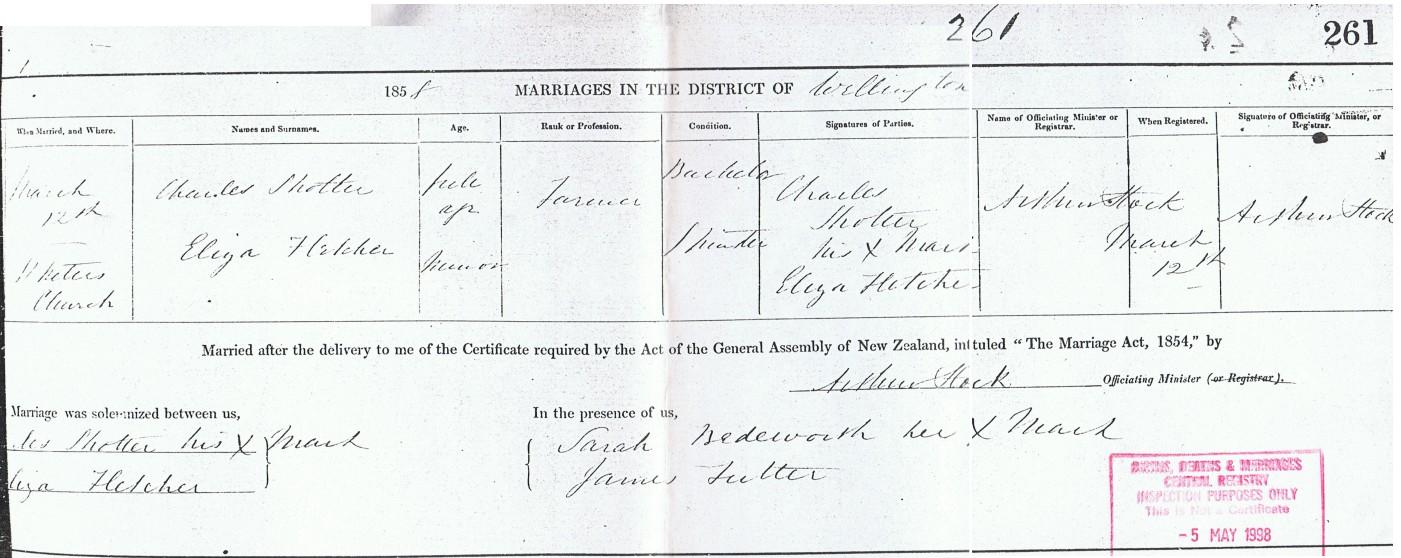 261
261
1858 MARRIAGES IN THE DISTRICT OF Wellington
When Married, and Where. Names and Surnames. Age. Rank or Profession. Condition. Signatures of Parties. Name of Officiating Minister or Registrar. When Registered. Signature of Officiating Minister, or Registrar.
March 12th
St Peters Church
Charles Shotter
Eliza Fletcher
Full age
Minor
Farmer
Bachelor
Spinster
Charles
Shotter
his X Mark
Eliza Fletcher
Arthur Stock
March
12th
Arthur Stock
Married after the delivery to me of the Certificate required by the Act of the General Assembly of New Zealand, intituled “The Marriage Act, 1854,” by
Arthur Stock Officiating Minister (or Registrar).
Marriage was solemnized between us,
les Shotter his X Mark
liza Fletcher
In the presence of us,
Sarah Bedeworth her X Mark
James Futter
BIRTHS, DEATHS & MARRIAGES
CENTRAL REGISTRY
INSPECTION PURPOSES ONLY
This is Not a Certificate
-5 MAY 1998